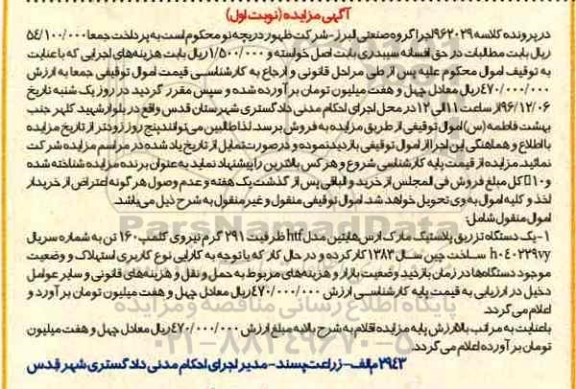 آگهی مزایده (نوبت اول)
در پرونده کلاسه ۹۶۲۰۲۹ اجرا گروه صنعتی البرز - شرکت ظهور دریچه نو محکوم است به پرداخت جمعا ۵۴/۱۰۰/۰۰۰
ریال بابت مطالبات در حق افسانه سپیدری بابت اصل خواسته و ۱/۵۰۰/۰۰۰ ریال بابت هزینه‌های اجرایی که با عنایت
به توقیف اموال محکوم علیه پس از طی مراحل قانونی و ارجاع به کارشناسی قیمت اموال توقیفی جمعا به ارزش
۴۷۰/۰۰۰/۰۰۰ ریال معادل چهل و هفت میلیون تومان برآورده شده و سپس مقرر گردید در روز یک شنبه تاریخ
۹۶/۱۲/۰۶ از ساعت ۱۱ الی ۱۲ در محل اجرای احکام مدنی دادگستری شهرستان قدس واقع در بلوار شهید کلهر جنب
بهشت فاطمه (س) اموال توقیفی از طریق مزایده به فروش برسد. لذا طالبین می‌توانند پنج روز زودتر از تاریخ مزایده
با اطلاع و هماهنگی این اجرا از اموال توقیفی بازدید نموده و در صورت تمایل از تاریخ یاد شده در مراسم مزایده شرکت
نمائید. مزایده از قیمت پایه کارشناسی شروع و هر کس بالاترین را پیشنهاد نماید به عنوان برنده مزایده شناخته شده
و ۱۰ کل مبلغ فروش فی المجلس از خرید و الباقی پس از گذشت یک هفته و عدم وصول هر گونه اعتراض از خریدار
اخذ و کلیه اموال به وی تحویل خواهد شد. اموال توقیفی منقول و غیر منقول به شرح ذیل می‌باشد.
اموال منقول شامل:
۱- یک دستگاه تزریق پلاستیک مارک ارس هایتین مدل htf ظرفیت ۲۹۱ گرم نیروی کلمپ ۱۶۰ تن به شماره سریال
ساخت چین سال ۱۳۸۳ کار کرده و در حال کار که با توجه به کارایی نوع کاربری استهلاک و وضعیت
موجود دستگاه‌ها در زمان بازدید وضعیت بازار و هزینه‌های مربوط به حمل و نقل و هزینه‌های قانونی و سایر عوامل
دخیل در ارزیابی به قیمت پایه کارشناسی ارزش ۴۷۰/۰۰۰/۰۰۰ ریال معادل چهل و هفت میلیون تومان برآورد و
اعلام می‌گردد.
با عنایت به مراتب بالا ارزش پایه مزایده اقلام به شرح بالا به مبلغ ارزش ۴۷۰/۰۰۰/۰۰۰ ریال معادل چهل و هفت میلیون
تومان برآورده اعلام می‌گردد.
۲۹۴۳ م الف - زراعت پسند - مدیر اجرای احکام مدنی دادگستری شهر قدس
ParsNamadData
پایگاه اطلاع رسانی مناقصه و مزایده
۰۲۱-۸۸۳۴۹۶۷۰-۵